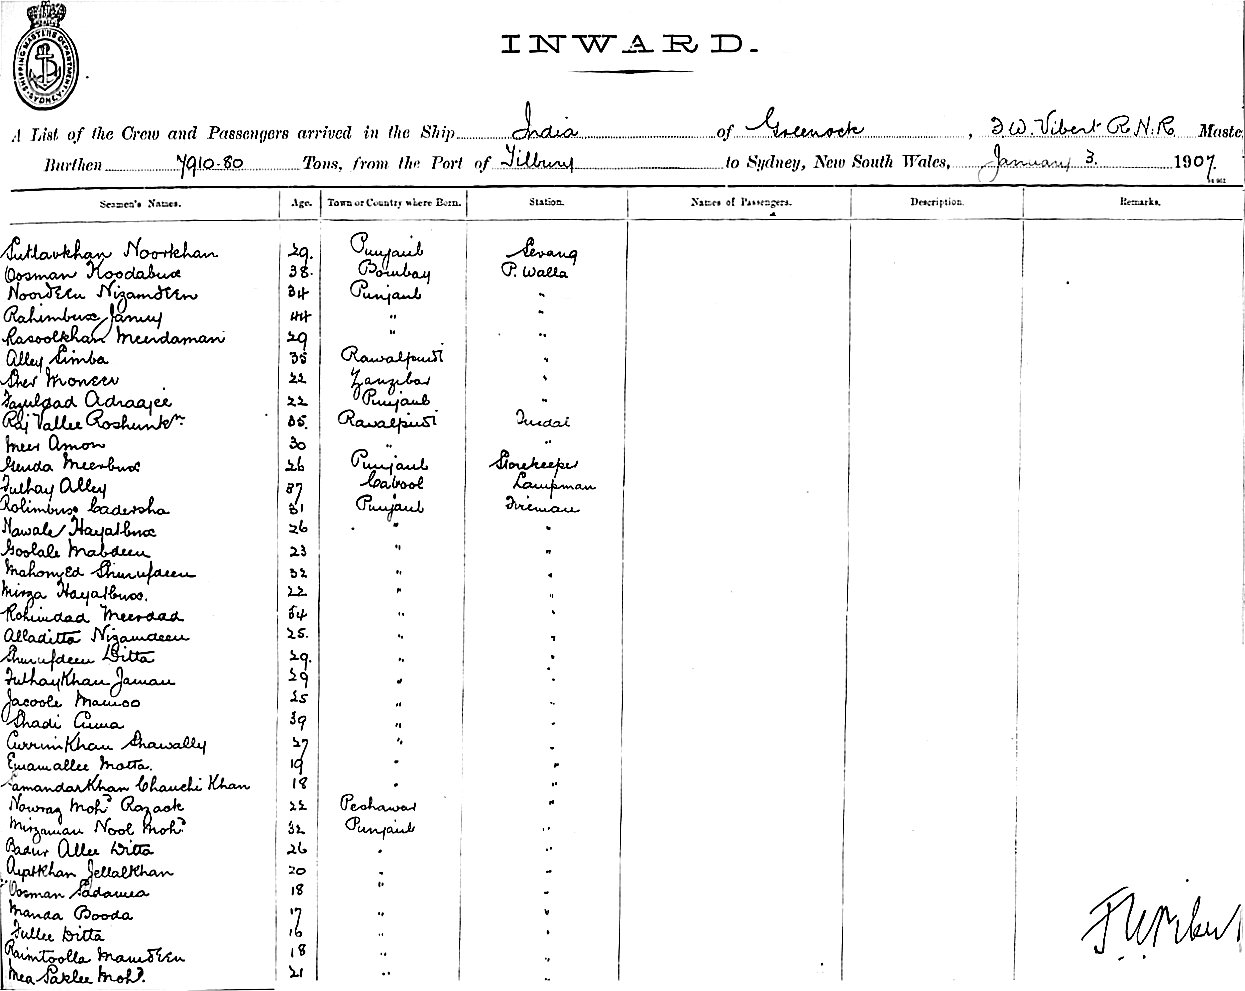 SHIPPING MASTERS DEPARTMENT SYDNEY
INWARD.
A List of the Crew and Passengers arrived in the Ship India of Greenock, F W. Vibert R.N.R Maste
Burthen 7910-80 Tons, from the Port of Tilbury to Sydney, New South Wales, January 3. 1907.
Seamen's Names. Age. Town or Country where Born. Station. Names of Passengers. Description. Remarks.
Sutlavkhan Noorkhan 29. Punjaub Serang
Oosman Koodabux 38. Bombay P. Walla
Noordeen Nizamdeen 34 Punjaub "
Rahimbux Janny 44 " "
Rasoolkhan Meerdaman 29 " "
Alley Simba 35 Rawalpindi "
Sher Moneer 22 Zanzibar "
Fazuldad Adraajee 22 Punjaub "
Raj Vallee Roshunkn. 35. Rawalpindi Tindal
Meer Amon 30 " "
Genda Meerbux 26 Punjaub Storekeeper
Futhay Alley 37 Cabool Lampman
Rolimbux Cadersha 31 Punjaub Fireman
Nawale Hayatbux 26 " "
Goolale Mabdeen 23 " "
Mahomed Shurufdeen 32 " "
Mirza Hayatbux. 22 " "
Rohimdad Meerdad 34 " "
Alladitta Nizamdeen 25. " "
Shurufdeen Ditta 29. " "
Futhaykhan Jaman 29 " "
Jacoole Mamoo 25 " "
Shadi Cuma 39 " "
Currimkhan Shawally 27 " "
Emamallee Motta. 19 " "
Samandarkhan Chauchi Khan 18 " "
Nowrag Mohd Razack 22 Peshawar "
Mirzaman Nool Mohd 32 Punjaub "
Badur Allee Ditta 26 " "
Ayutkhan Jellalkhan 20 " "
Oosman Sadamea 18 " "
Manda Booda 17 " "
Fullee Ditta 16 " "
Raimtoolla Mamdeen 18 " "
Mea Saklee Mohd. 21 " "
F W Vibert